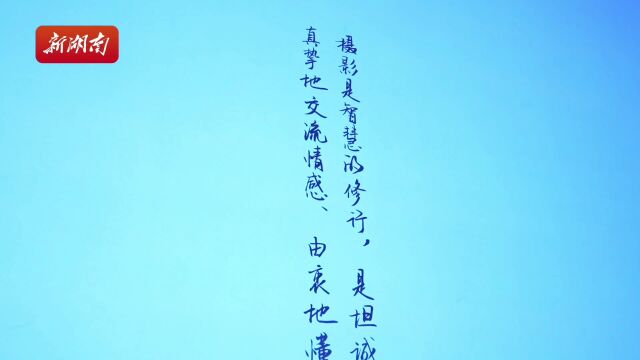 新湖南
摄影是智慧的修行，是坦诚
真挚地交流情感、由衷地懂